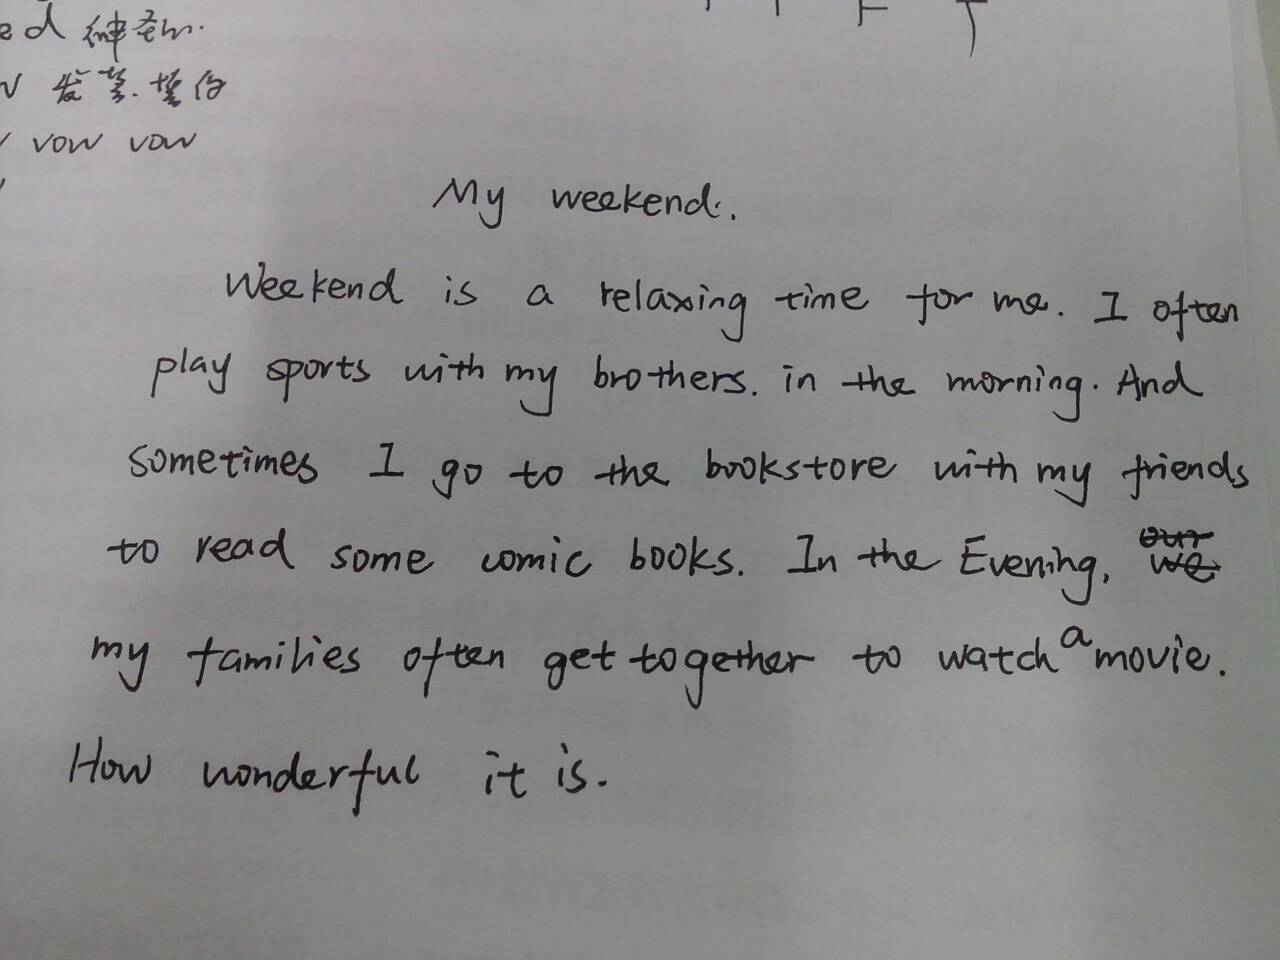 发誓.誓约
vow vow
My weekend.
Weekend is a relaxing time for me. I often
play sports with my brothers. in the morning. And
sometimes I go to the bookstore with my friends
to read some comic books. In the Evening,
my families often get together to watch a movie.
How wonderful it is.